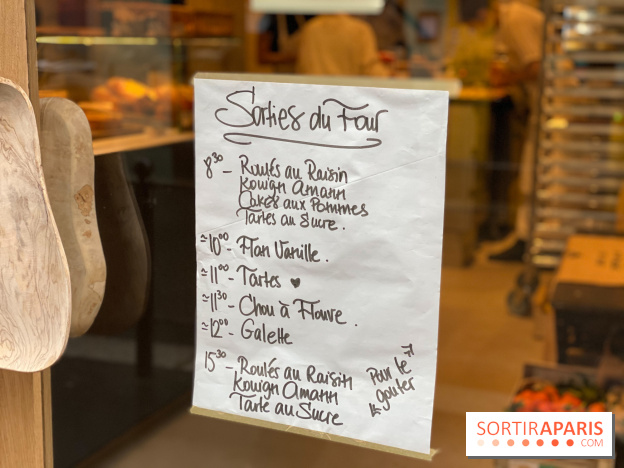 Sorties du Four
8³⁰ - Roulés au Raisin
Kouign Amann
Cakes aux Pommes
Tartes au Sucre.
≈10⁰⁰ - Flan Vanille.
≈11⁰⁰ - Tartes ♥
≈11³⁰ - Chou à Flouve.
≈12⁰⁰ - Galette
15³⁰ - Roulés au Raisin
Kouign Amann
Tarte au Sucre
Pour le
goûter
SORTIRAPARIS
.COM